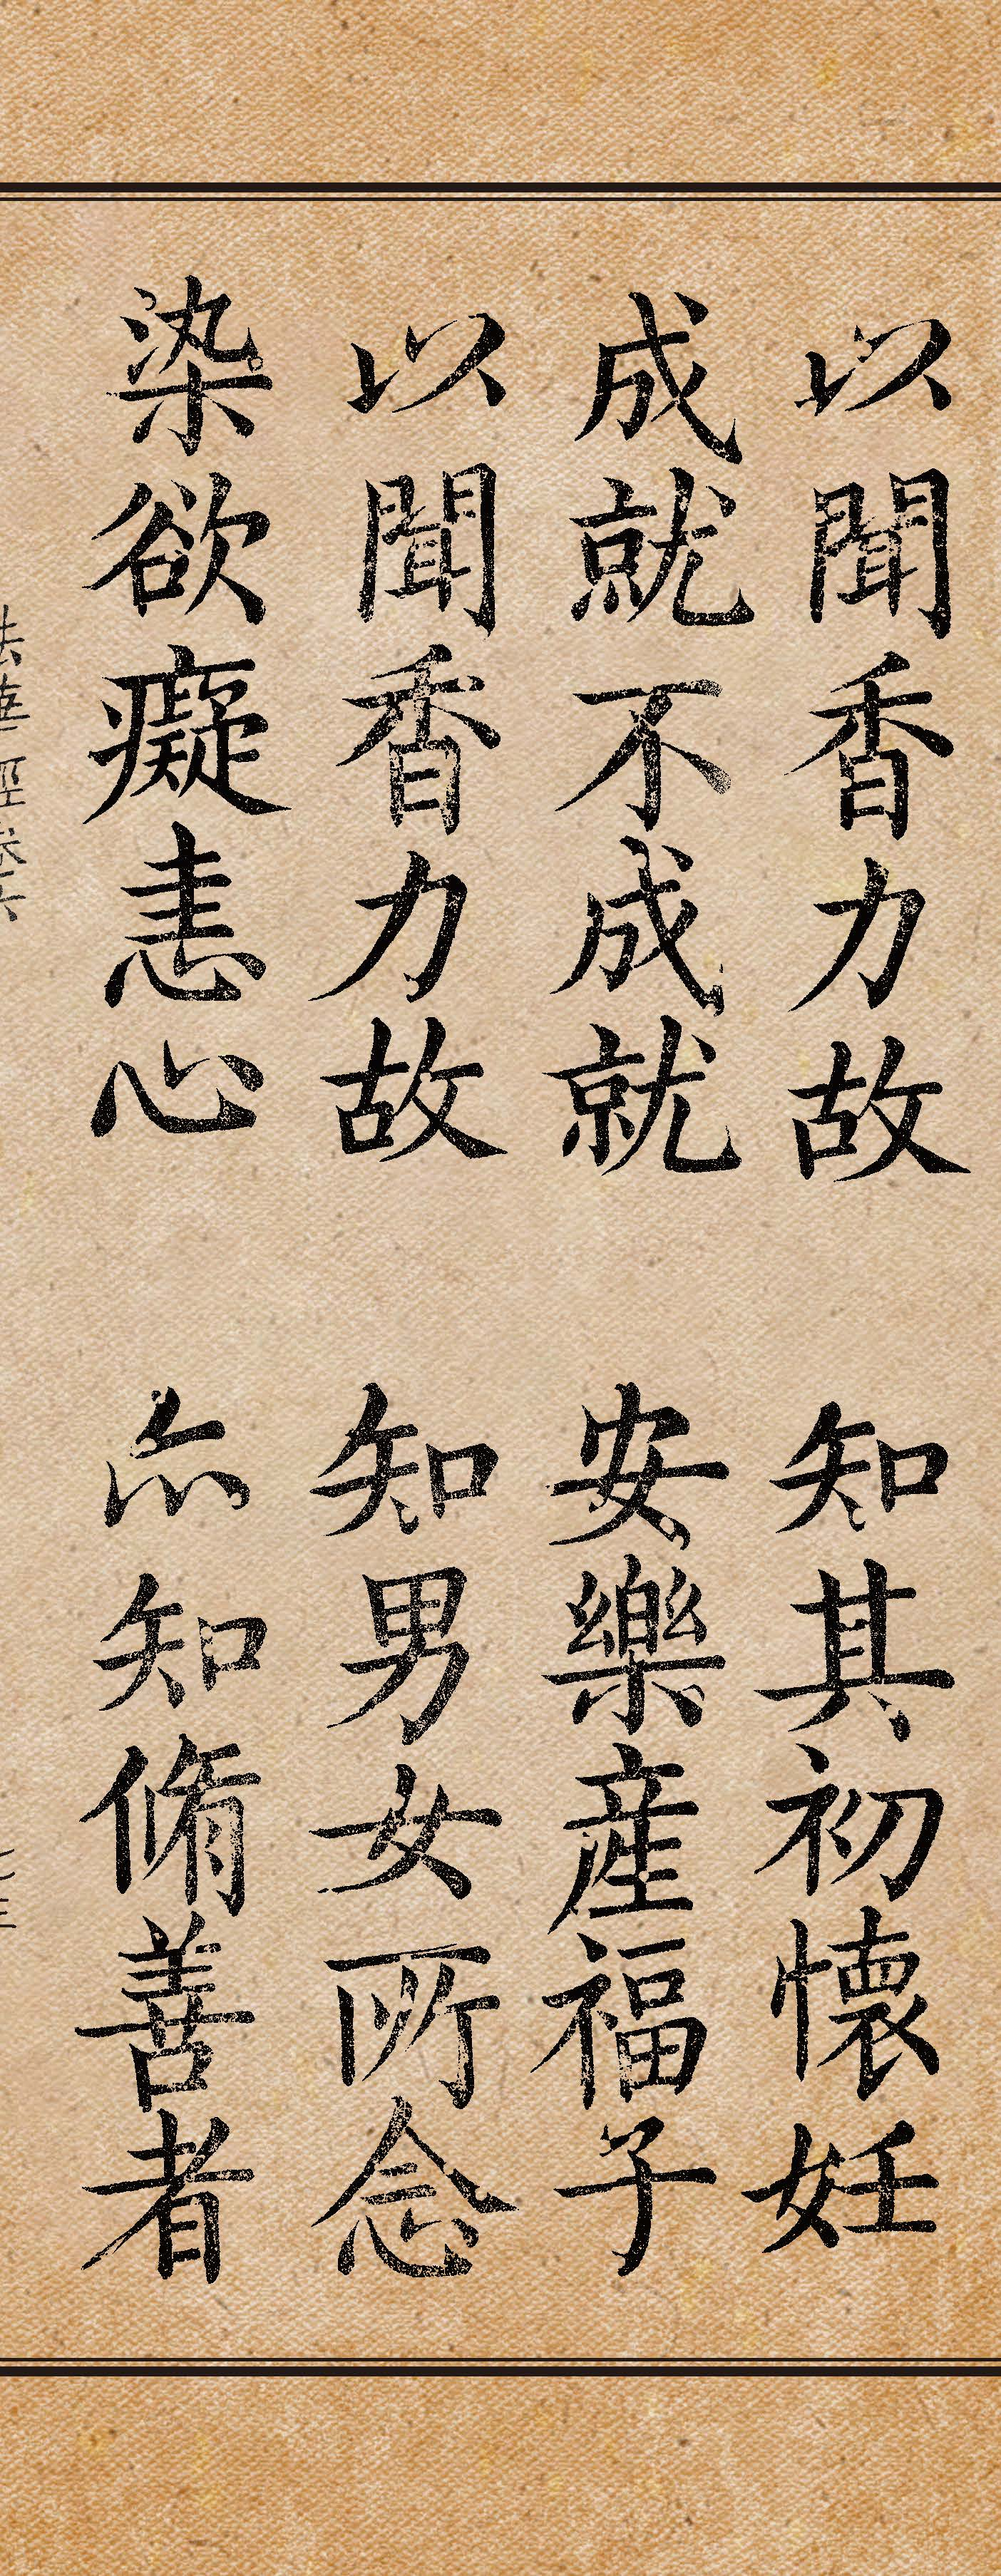 以聞香力故　知其初懷妊
成就不成就　安樂産福子
以聞香力故　知男女所念
染欲癡恚心　亦知脩善者